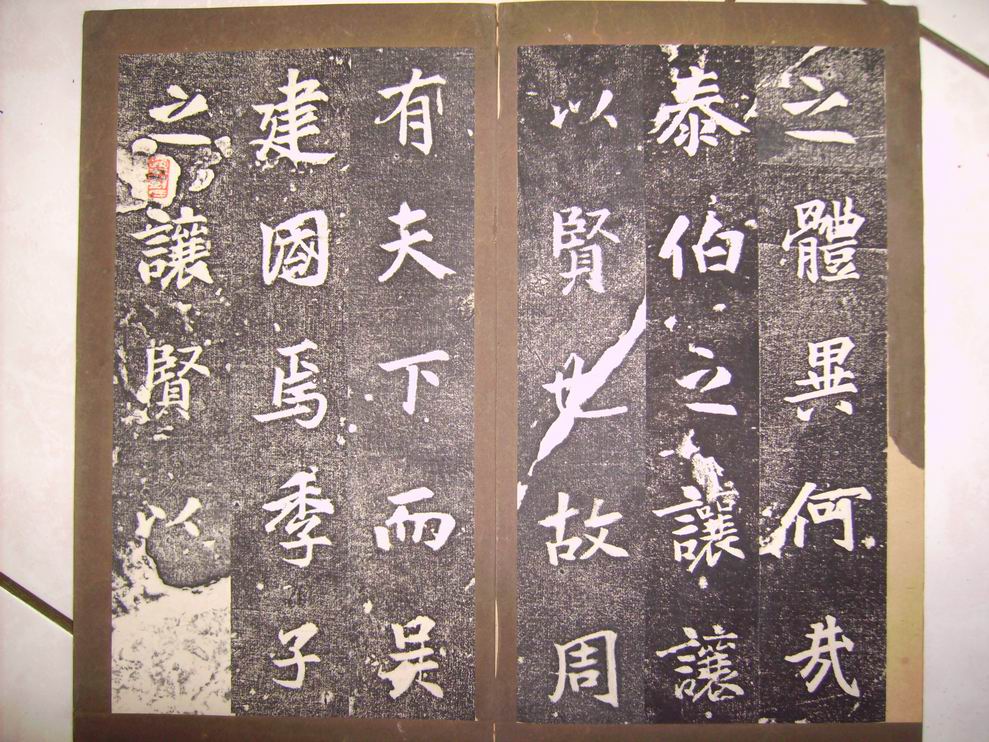 之體異何哉
泰伯之讓讓
以賢也故周
有天下而吳
建國焉季子
之讓賢以